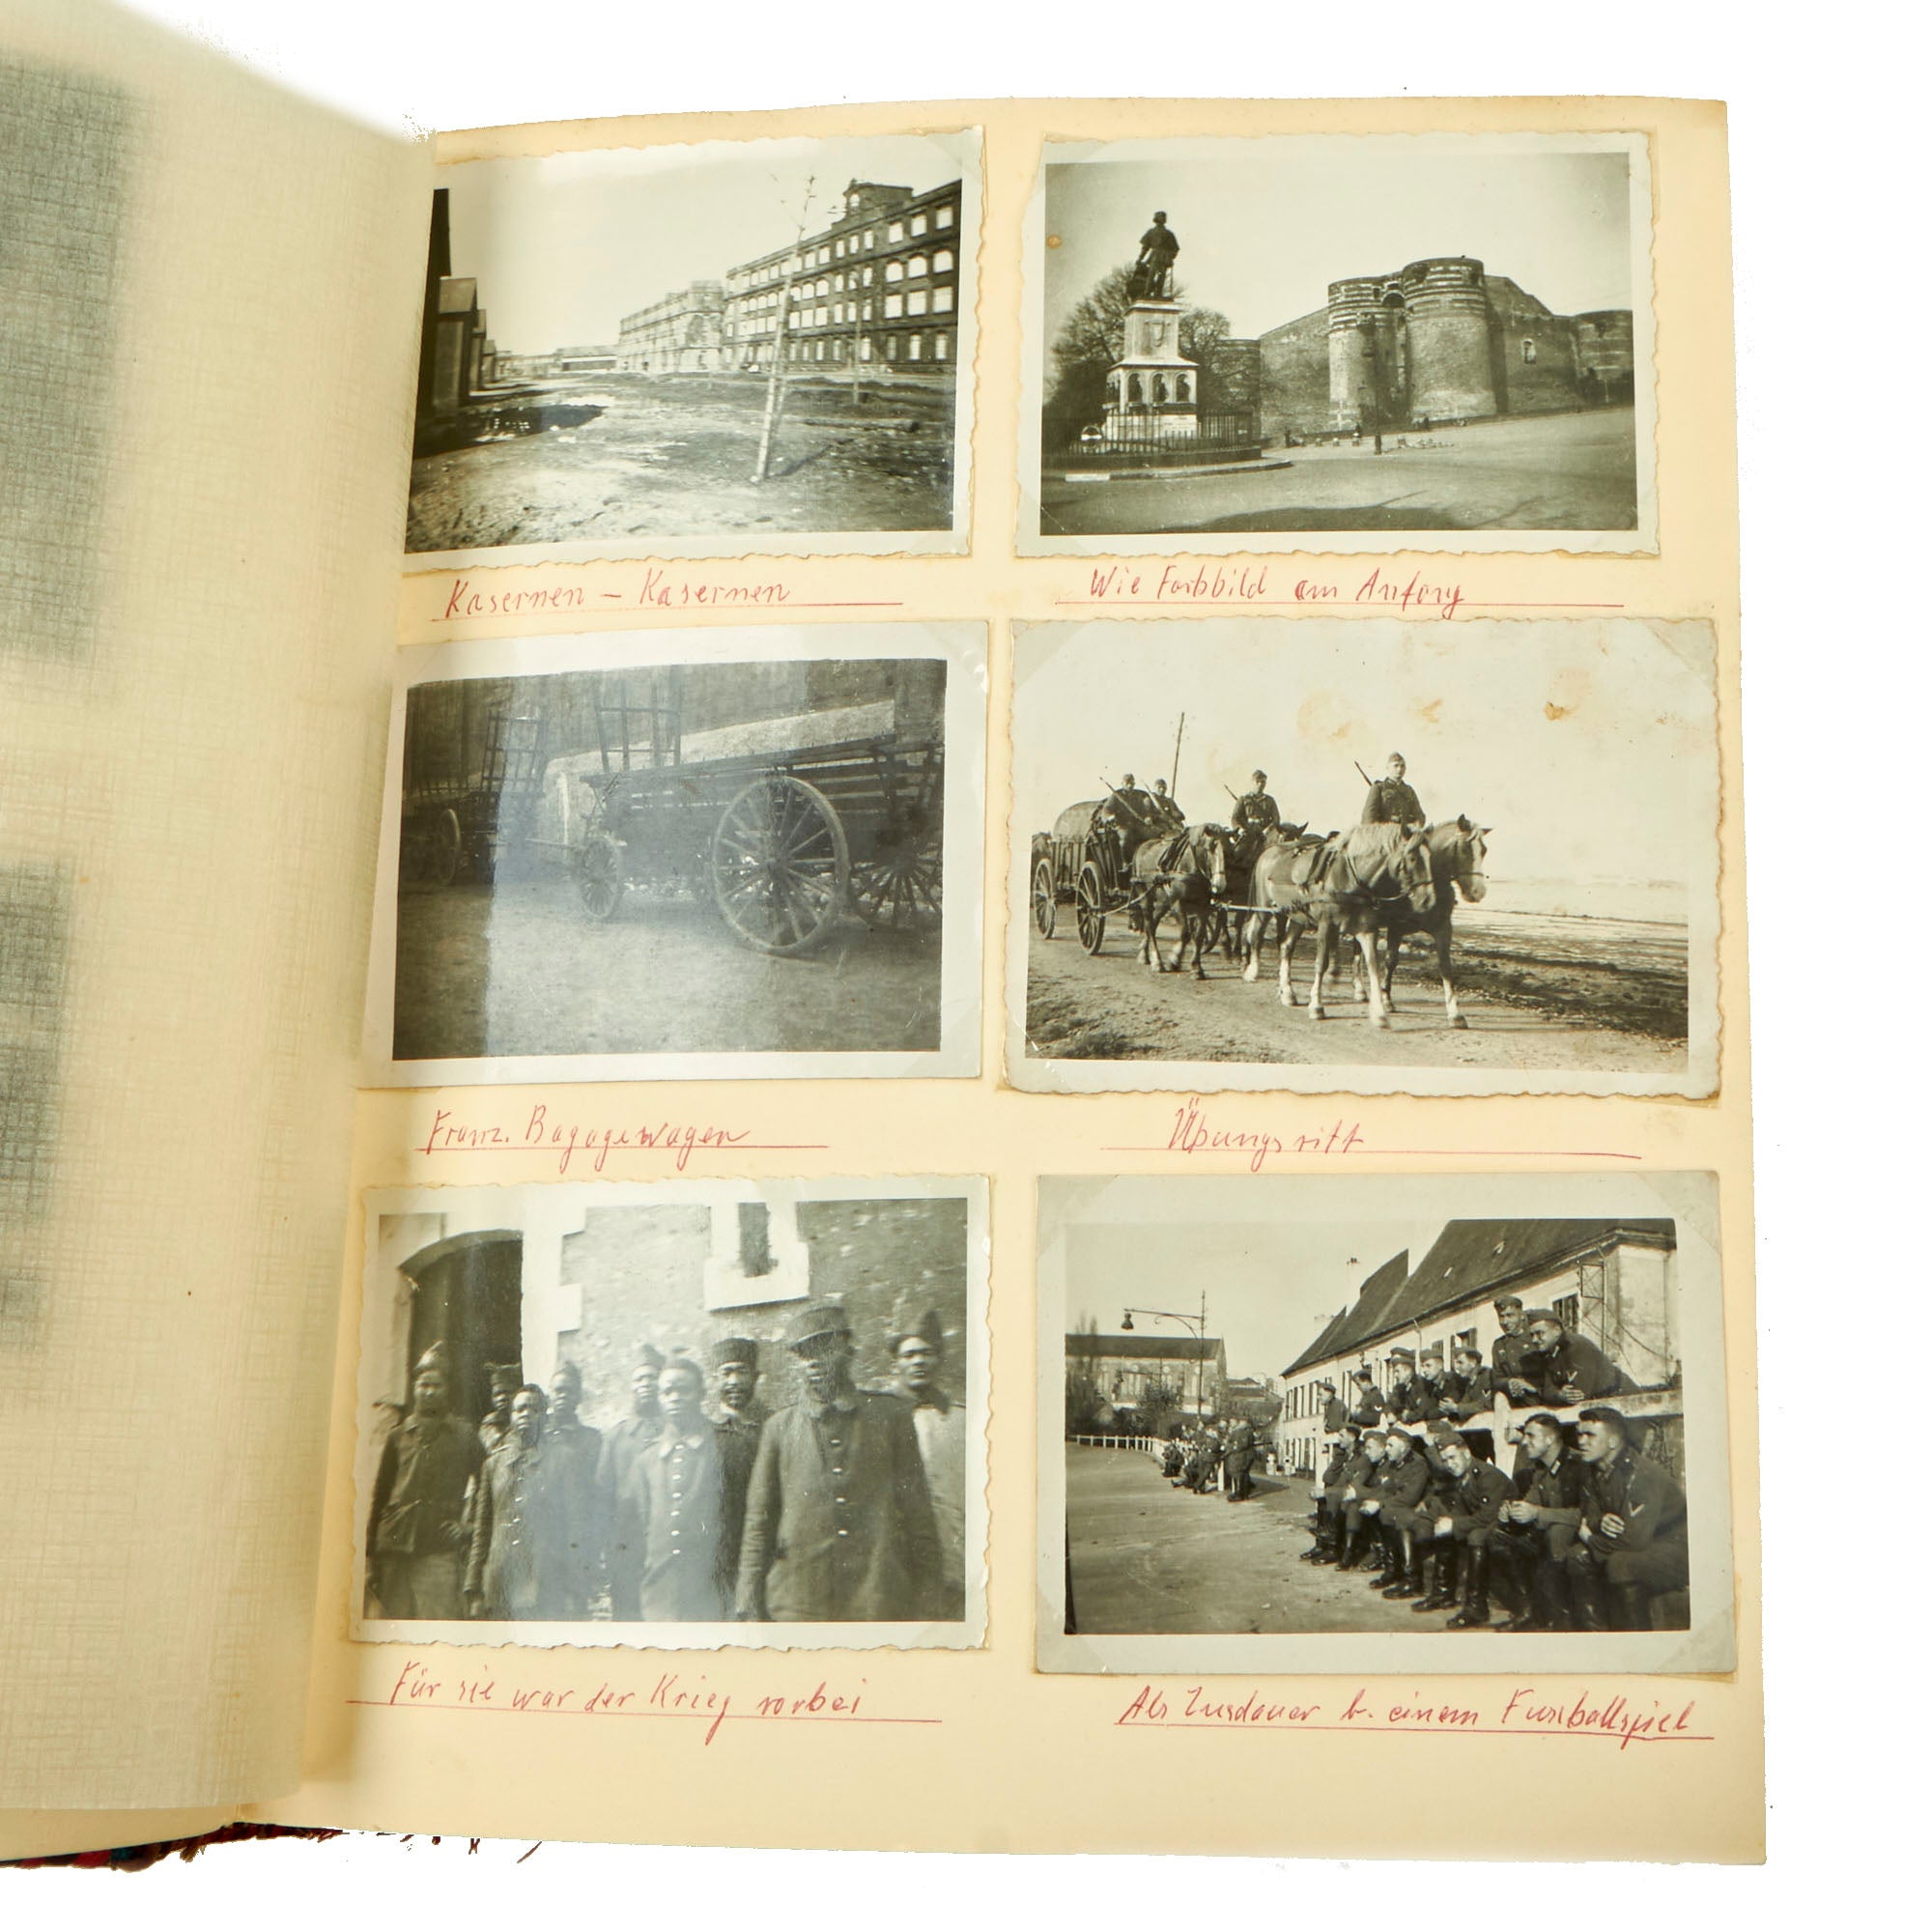 Kasernen – Kasernen
Wie Farbbild am Anfang
Franz. Bagagewagen
Übungsritt
Für sie war der Krieg vorbei
Als Zusdauer b. einem Fussballspiel